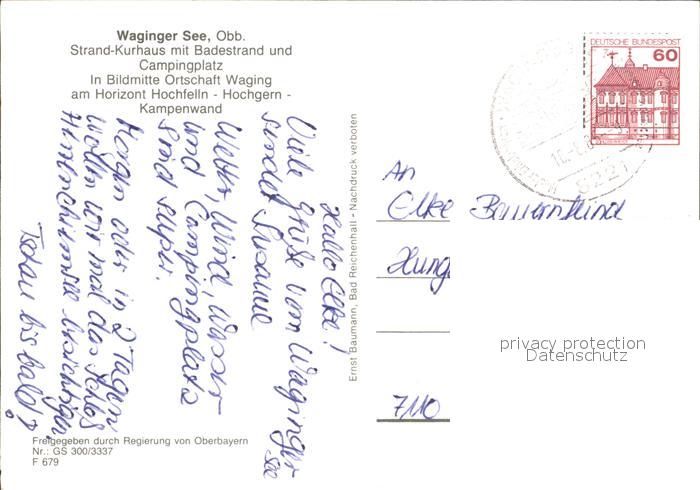 Waginger See, Obb.
Strand-Kurhaus mit Badestrand und
Campingplatz
In Bildmitte Ortschaft Waging
am Horizont Hochfelln - Hochgern -
Kampenwand
Hallo Elke!
Viele Grüße vom Waginger
see
sendet Susanne
Wetter, Wind, Wasser
und Campingplatz
sind super.
Morgen oder in 2 Tagen
wollen wir mal das Schloß
Herrenchiemsee besichtigen.
Tschau bis bald!
Freigegeben durch Regierung von Oberbayern
Nr.: GS 300/3337
F 679
Ernst Baumann, Bad Reichenhall - Nachdruck verboten
DEUTSCHE BUNDESPOST
60
8221
An
Elke
Hung
7110
privacy protection
Datenschutz